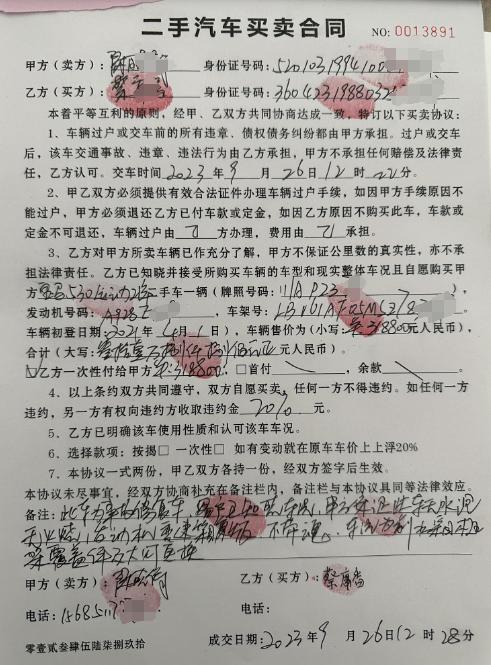 二手汽车买卖合同 NO: 0013891
甲方（卖方）： 身份证号码：5201031994100
乙方（买方）： 身份证号码：36042319880325
本着平等互利的原则，经甲、乙双方共同协商达成一致，特订以下买卖协议：
1、车辆过户或交车前的所有违章、债权债务纠纷都由甲方承担。过户或交车
后，该车交通事故、违章、违法行为由乙方承担，甲方不承担任何赔偿及法律责
任，乙方认可。交车时间 2023年9月26日12时22分。
2、甲乙双方必须提供有效合法证件办理车辆过户手续，如因甲方手续原因不
能过户，甲方必须退还乙方已付车款或定金，如因乙方原因不购买此车，车款或
定金不可退还，车辆过户由 方办理，费用由 承担。
3、乙方对甲方所卖车辆已作充分了解，甲方不保证公里数的真实性，亦不承
担法律责任。乙方已知晓并接受所购买车辆的车型和现实整体车况且自愿购买甲
方 宝马530 二手车一辆（牌照号码： ），
发动机号码： ，车架号： ，
车辆初登日期：2021年4月1日），车辆售价为（小写：318800元人民币），
合计（大写： 元人民币）。
乙方一次性付给甲方 318800，□首付 ，余款 。
4、以上条约双方共同遵守，双方自愿买卖，任何一方不得违约。如任何一方
违约，另一方有权向违约方收取违约金 20% 元。
5、乙方已明确该车使用性质和认可该车车况。
6、选择款项：按揭□ 一次性□ 如有变动就在原车车价上上浮20%
7、本协议一式两份，甲乙双方各持一份，经双方签字后生效。
本协议未尽事宜，经双方协商补充在备注栏内，备注栏与本协议具同等法律效应。
备注：此车为事故修复车，
甲方（卖方）： 乙方（买方）：
电话： 电话：
零壹贰叁肆伍陆柒捌玖拾 成交日期：2023年9月26日12时28分